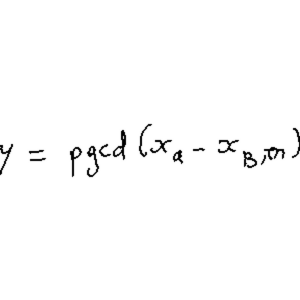 y = pgcd(x_a - x_B, m)